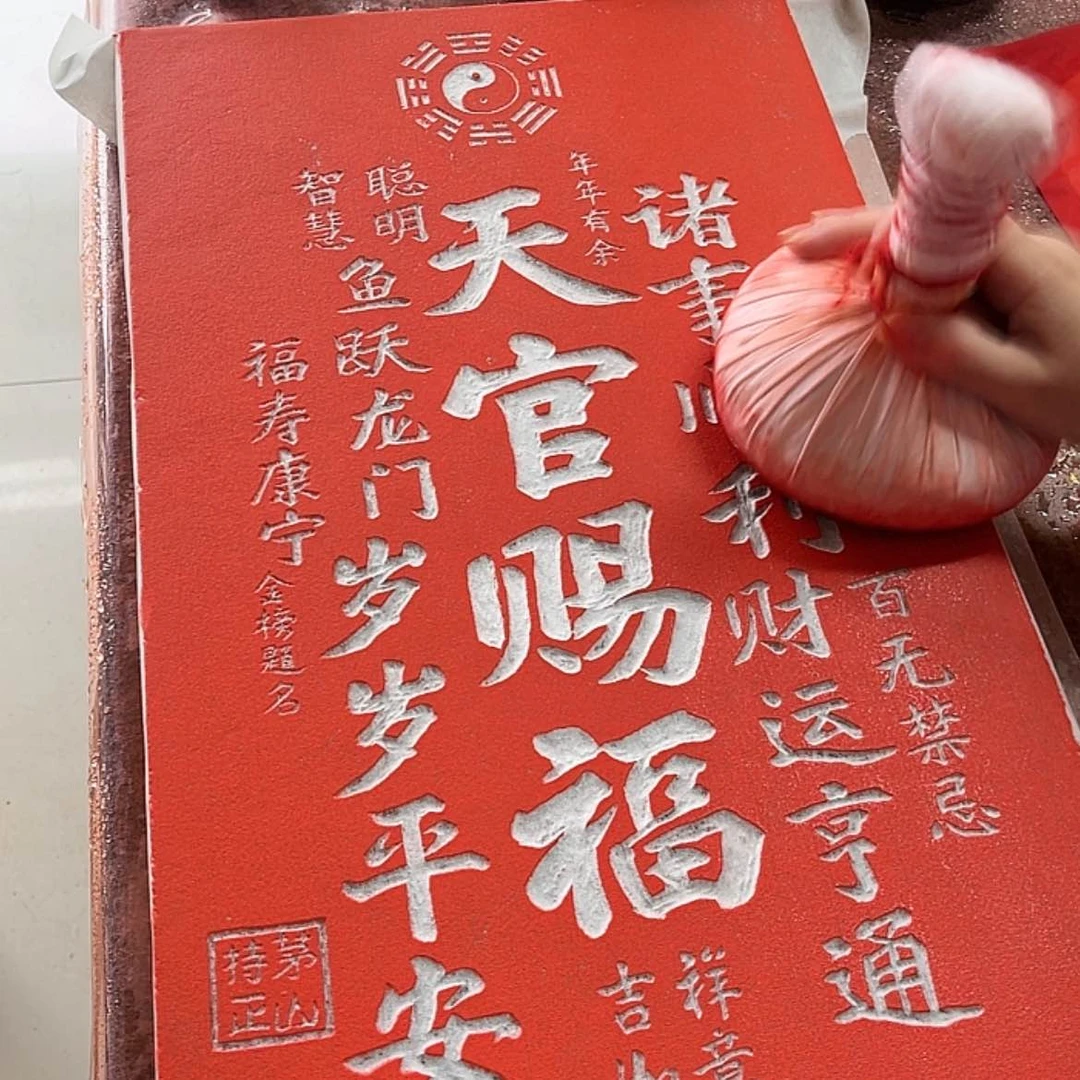 百无禁忌
诸事顺利财运亨通
年年有余
天官赐福
吉祥
如意
聪明
智慧
鱼跃龙门
岁岁平安
福寿康宁
金榜題名
茅山
持正